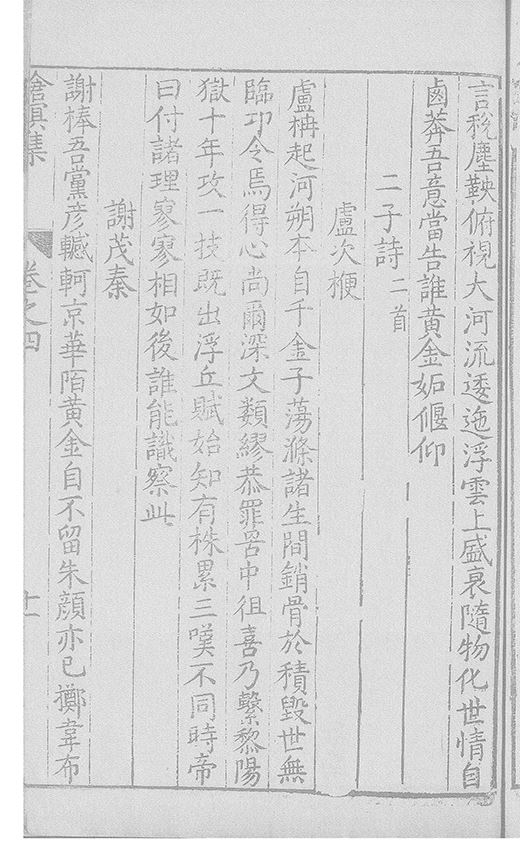 言稅塵鞅俯視大河流逶迤浮雲上盛衰隨物化世情自
鹵莽吾意當告誰黃金妬偃仰
二子詩二首
盧次楩
盧柟起河朔本自千金子蕩滌諸生間銷骨於積毀世無
臨卭令焉得心尚爾深文類繆恭罪罟中徂喜乃繫黎陽
獄十年攻一技既出浮丘賦始知有株累三嘆不同時帝
曰付諸理寥寥相如後誰能識察此
謝茂秦
謝榛吾黨彥轗軻京華陌黃金自不留朱顏亦已擲韋布
滄溟集
卷之四
十一